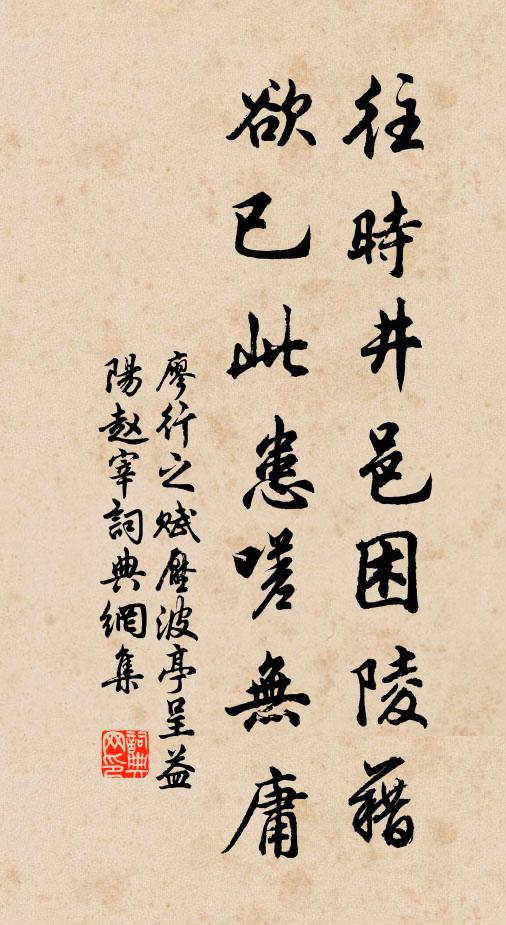 往時井邑困陵藉
欲已此患嗟無庸
廖行之賦壓波亭呈益
陽赵宰詞典網集
詞典網印